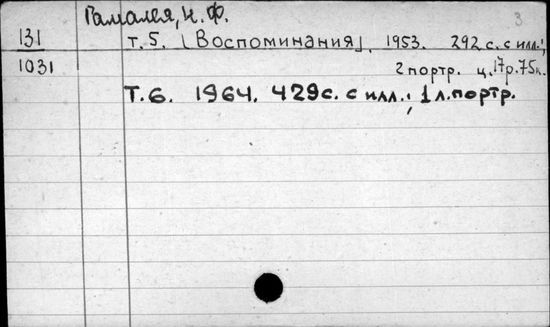 Гамалея, Н. Ф.
3
131
т. 5. [Воспоминания]. 1953. 292 с. с илл.;
1031
2 портр. ц. 17р.75к.
Т. 6. 1964. 429 с. с илл.; 1 л. портр.